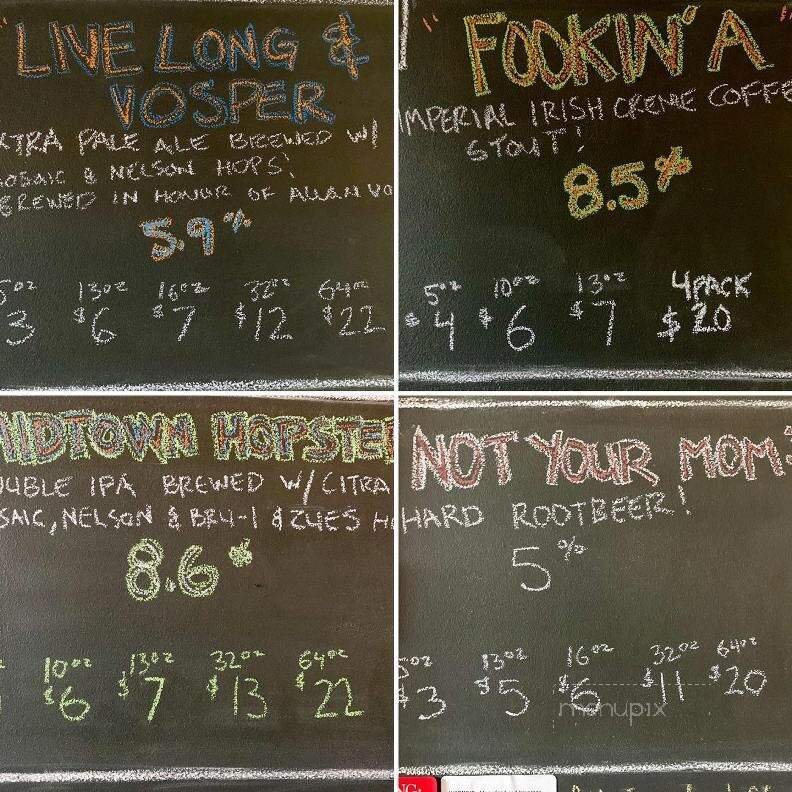 "LIVE LONG &
VOSPER
XTRA PALE ALE BREWED W/
MOSAIC & NELSON HOPS!
BREWED IN HONOR OF ALLAN VO
5.9%
5oz 13oz 16oz 32oz 64oz
3 $6 $7 $12 $22
"FOOKIN' A"
IMPERIAL IRISH CREME COFFE
STOUT!
8.5%
5oz 10oz 13oz 4PACK
$4 $6 $7 $20
MIDTOWN HOPSTE
UBLE IPA BREWED W/CITRA
SAIC, NELSON & BRU-1 & ZUES H
8.6%
10oz 13oz 32oz 64oz
$6 $7 $13 $22
NOT YOUR MOM'S
HARD ROOTBEER!
5%
5oz 13oz 16oz 32oz 64oz
$3 $5 $6 $11 $20
menupix